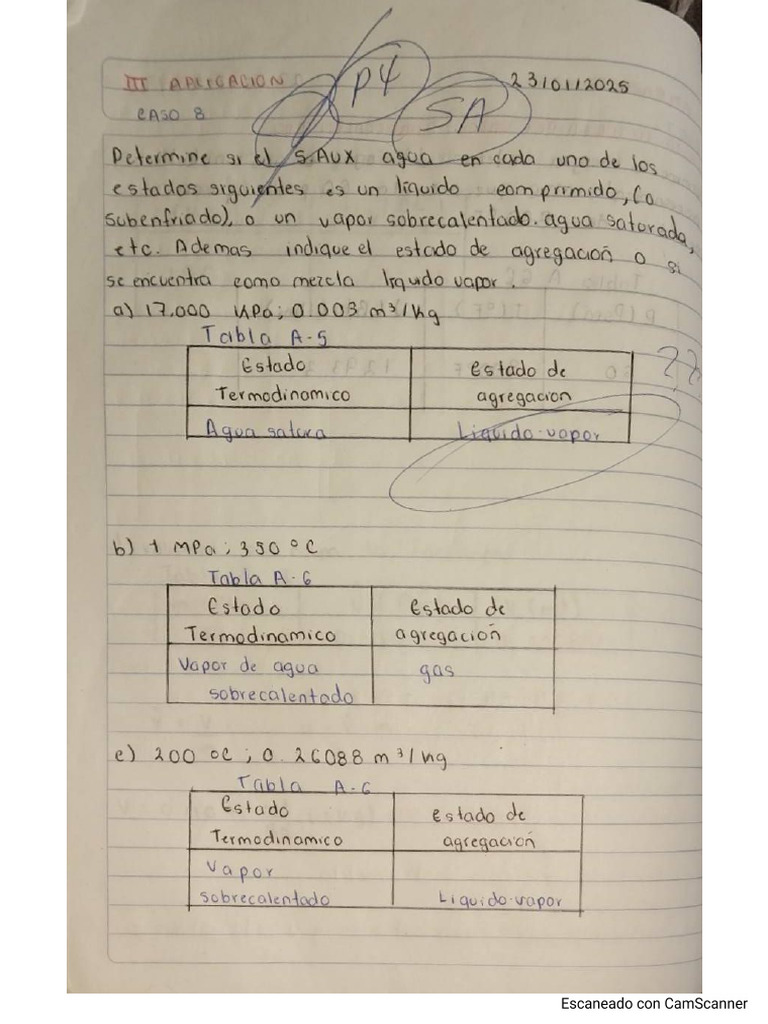 III APLICACION
P4
23/01/2025
CASO 8
SA
Determine si el S.Aux agua en cada uno de los
estados siguientes es un líquido comprimido, (o
subenfriado), o un vapor sobrecalentado. agua saturada,
etc. Ademas indique el estado de agregación o si
se encuentra como mezcla líquido vapor.
a) 17.000 KPa; 0.003 m³/kg
Tabla A-5
Estado Termodinamico
Estado de agregacion
Agua satura
Liquido-vapor
??
b) 1 MPa; 350 °C
Tabla A-6
Estado Termodinamico
Estado de agregación
Vapor de agua sobrecalentado
gas
c) 200 °C; 0.26088 m³/kg
Tabla A-6
Estado Termodinamico
Estado de agregación
Vapor sobrecalentado
Liquido-vapor
Escaneado con CamScanner